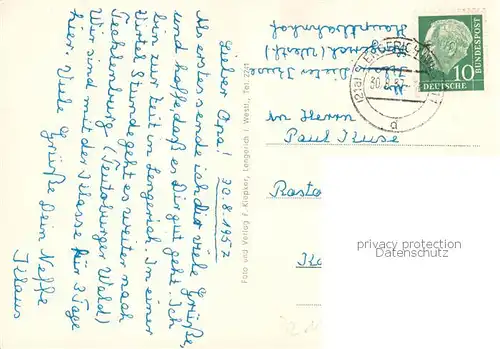 Lieber Opa! 30.8.1957
Als erstes sende ich dir viele Grüße,
und hoffe daß es Dir gut geht. Ich
bin zur Zeit in Lengerich. In einer
Viertel Stunde geht es weiter nach
Tecklenburg (Teutoburger Wald)
Wir sind mit der Klasse für 3 Tage
hier. Viele Grüße Dein Neffe
Klaus
Foto und Verlag F. Klepker, Lengerich i. Westf., Tel. 2241
Dieter Kuse
Lengerich (Westf)
Hauptbahnhof
LENGERICH
30.8.57
a
10
DEUTSCHE
BUNDESPOST
An Herrn
Paul Kuse
Rasta
privacy protection
Datenschutz